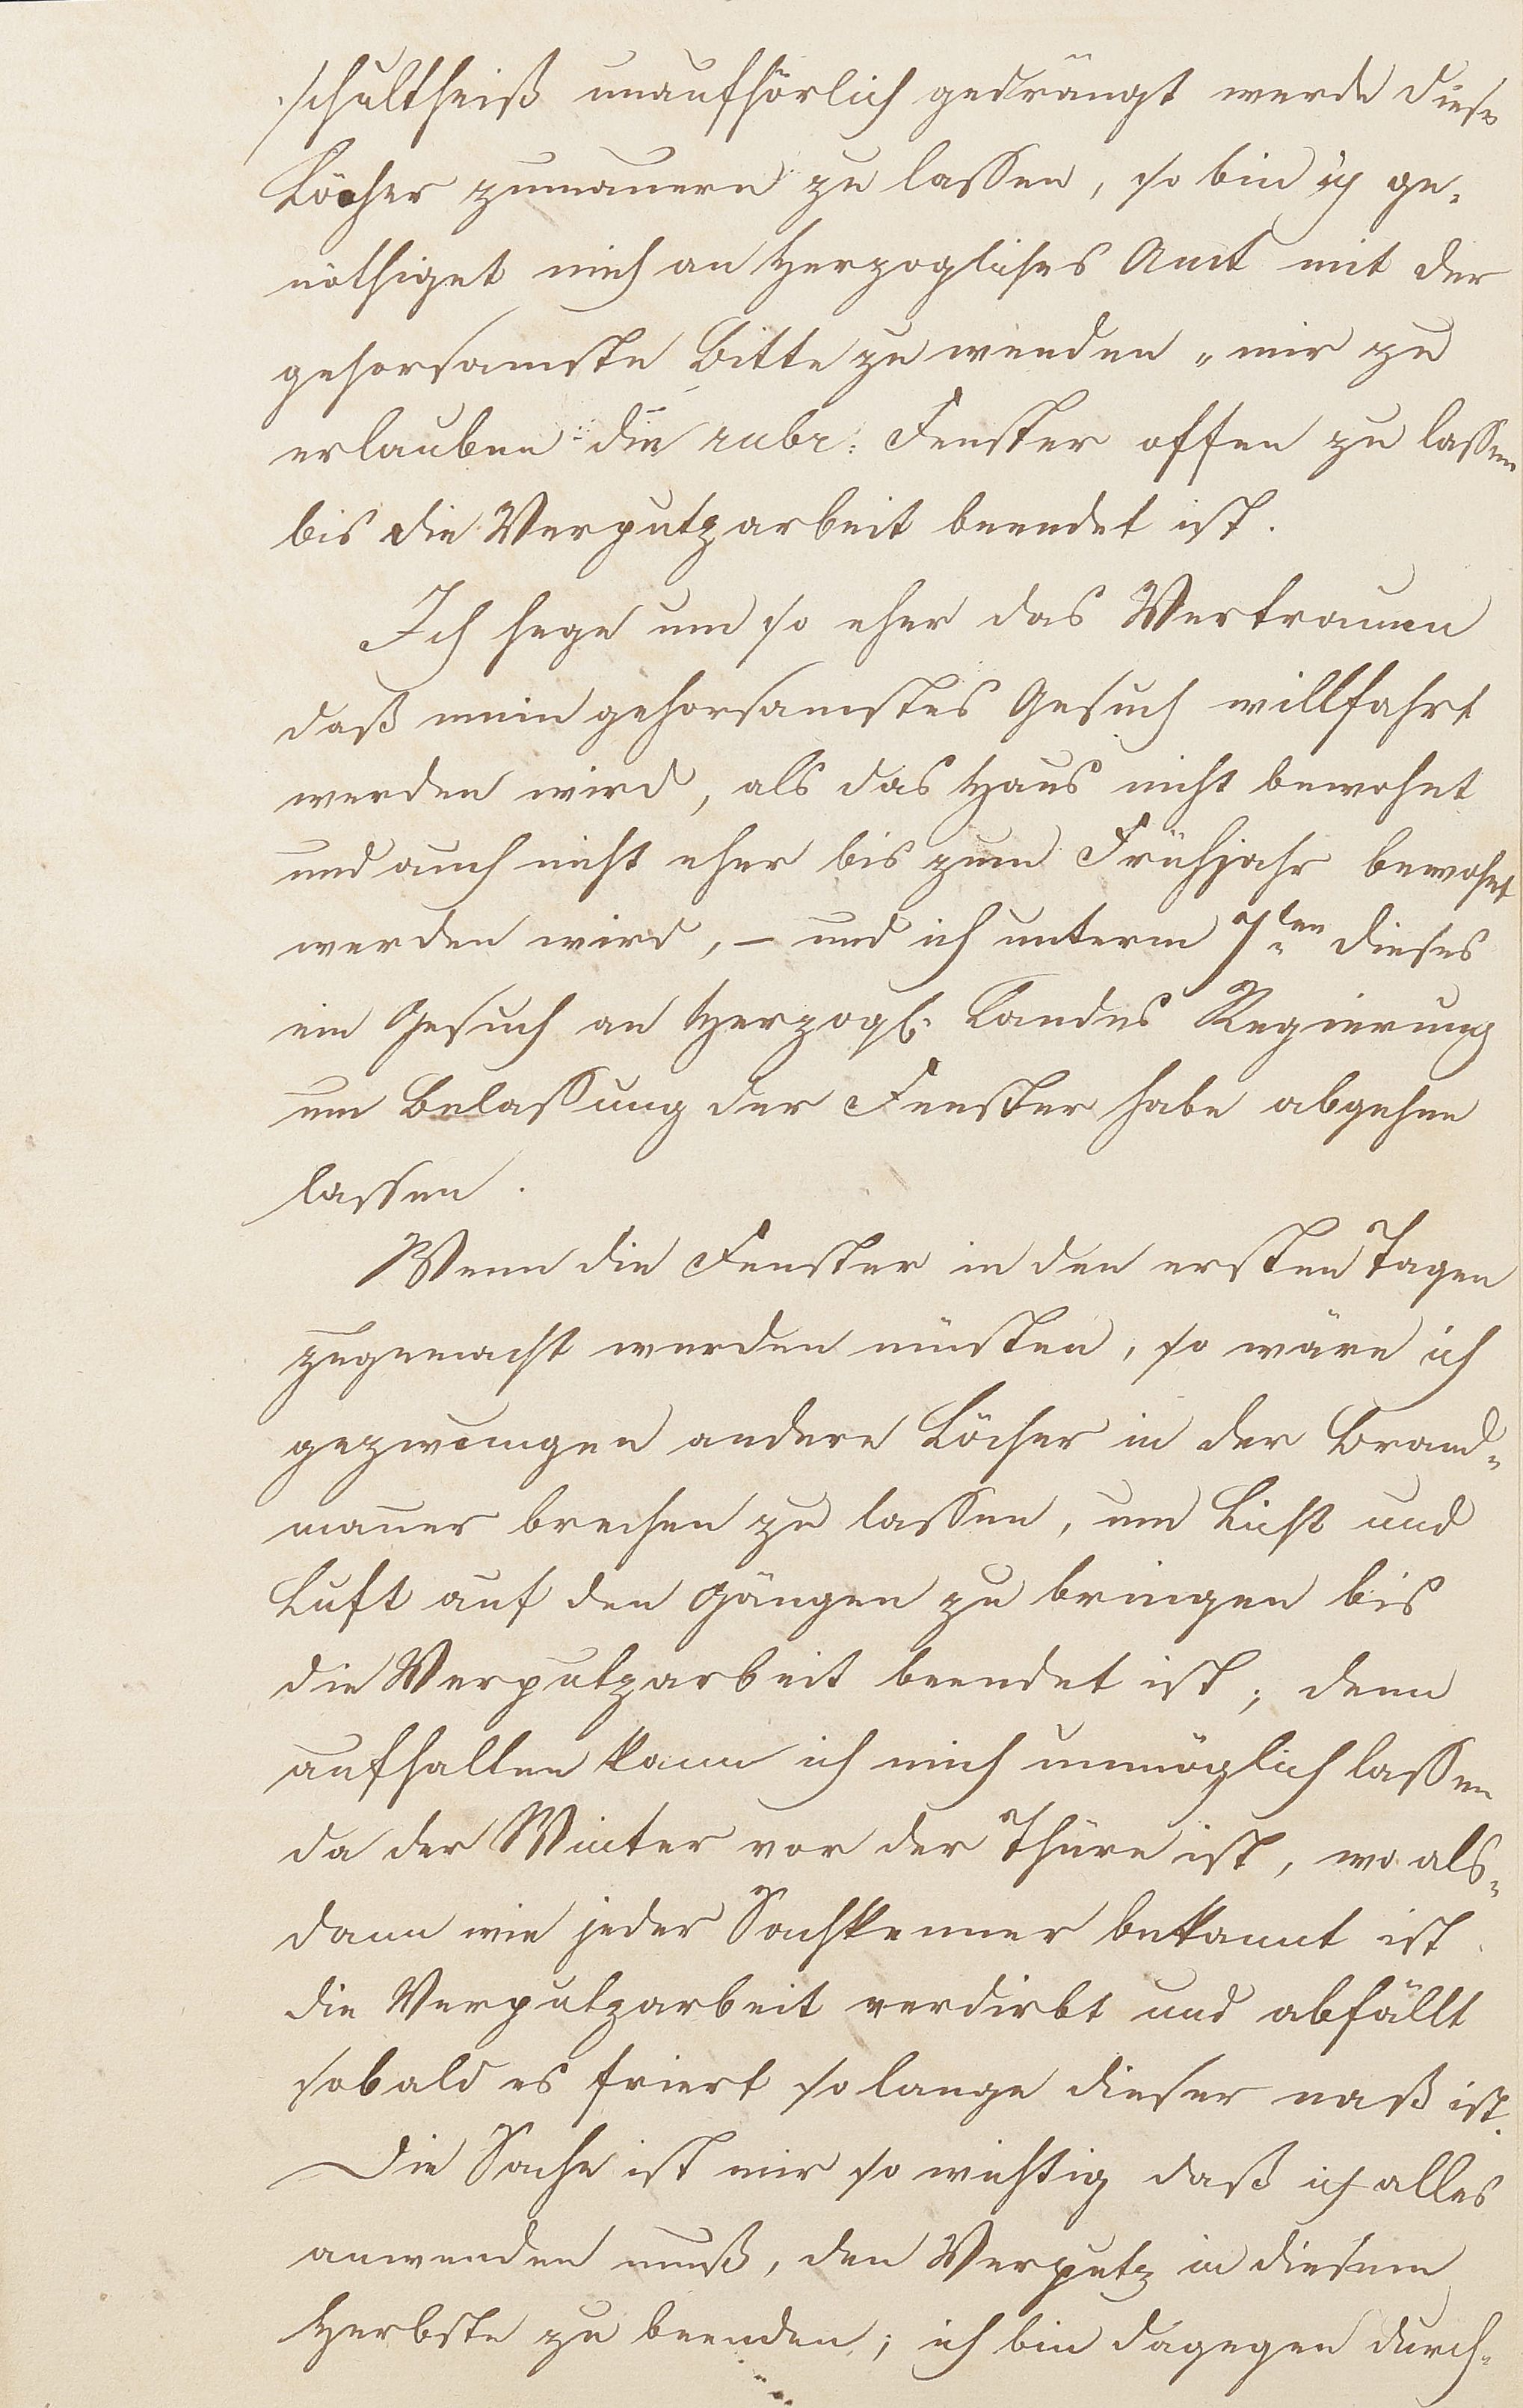 schultheiß unaufhörlich gedrängt werde diese
Löcher zumauern zu lassen, so bin ich ge-
nöthiget mich an Herzogliches Amt mit der
gehorsamsten Bitte zu wenden „mir zu
erlauben die rubr: Fenster offen zu lassen
bis die Verputzarbeit beendet ist.
Ich hege um so eher das Vertrauen
daß mein gehorsamstes Gesuch willfahrt
werden wird, als das Haus nicht bewohnt
und auch nicht eher bis zum Frühjahr bewohnt
werden wird, – und ich unterm 7ten dieses
ein Gesuch an Herzogl. Landes Regierung
um Belassung der Fenster habe abgehen
lassen.
Wenn die Fenster in den ersten Tagen
zugemacht werden müsten, so wäre ich
gezwungen andere Löcher in der Brand-
mauer brechen zu lassen, um Licht und
Luft auf den Gängen zu bringen bis
die Verputzarbeit beendet ist; denn
aufhalten kann ich mich unmöglich lassen
da der Winter vor der Thüre ist, wo als-
dann wie jeder Sachkenner bekannt ist
die Verputzarbeit verdirbt und abfällt
sobald es friert so lange dieser naß ist.
Die Sache ist mir so wichtig daß ich alles
anwenden muß, den Verputz in diesem
Herbste zu beenden; ich bin dagegen durch-